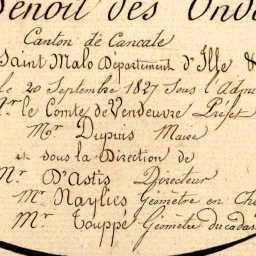 Benoit des Ond
Canton de Cancale
Saint Malo Département d'Ille &
le 20 Septembre 1827 Sous l'Admi
Mr. le Comte de Vendeuvre Préfet
Mr Dupuis Maire
et sous la Direction de
Mr D'Astis Directeur
Mr Naylies Géomètre en Ch
Mr Touppé Géomètre du cadas